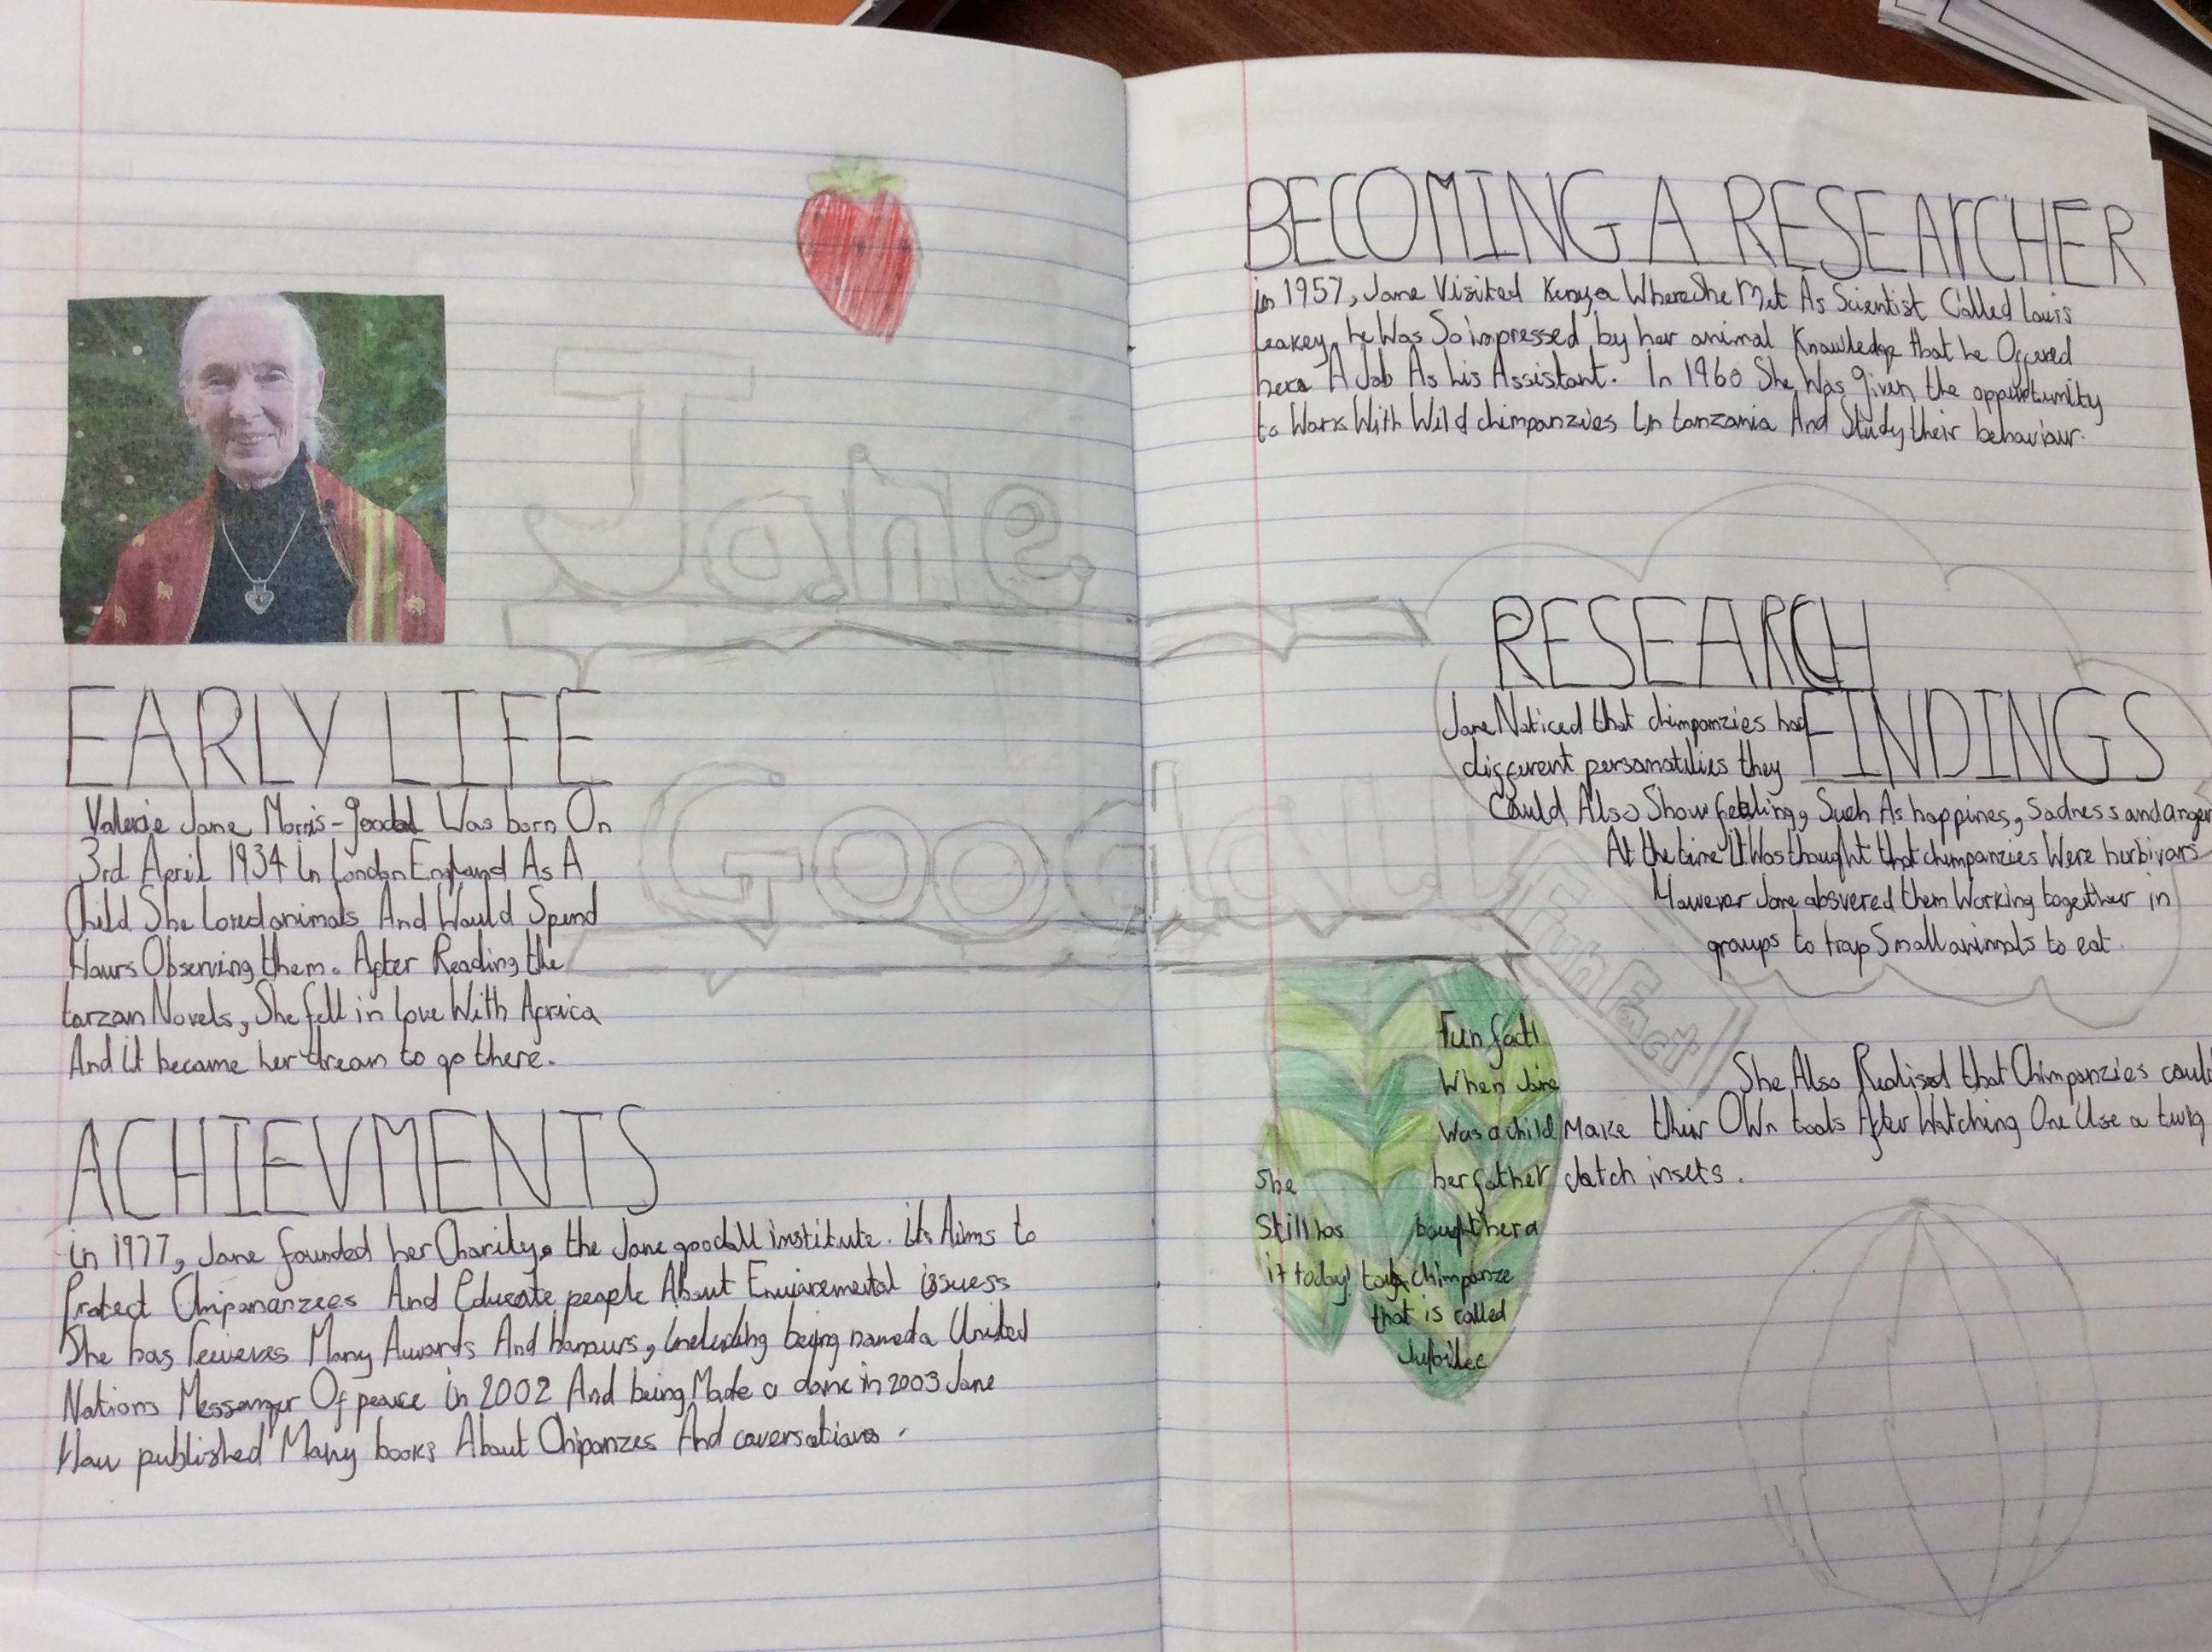 Jane
Goodall
EARLY LIFE
Valerie Jane Morris-goodal Was born On
3rd April 1934 In London England As A
Child She Loved animals And Would Spend
Hours Observing them. After Reading the
tarzan Novels, She fell in love With Africa
And it became her dream to go there.
ACHIEVMENTS
in 1977, Jane founded her Charity, the Jane goodall institute. its Aims to
Protect Chipananzees And Educate people About Enviaremental issuess
She has Many Awards And hanours, being named a United
Nations Messanger Of peace in 2002 And being Made a dame in 2003 Jane
Hav published Many books About Chipanzes And caversations.
BECOMING A RESEARCHER
in 1957, Jane Visited Kenya Where She Met As Scientist Called Louis
Leakey, he Was So impressed by her animal Knowledge that he Offered
here A Job As his Assistant. In 1960 She Was given the oppurtunity
to Work With Wild chimpanzies In tanzania And Study their behaviour.
RESEARCH
FINDINGS
Jane Noticed that chimpanzies had
different personatilies they
Could Also Show feeling, Such As happines, Sadness and anger
At the time it Was thought that chimpanzies Were herbivars
However Jane absvered them Working together in
groups to trap Small animals to eat.
Fun Fact
She Also Realised that Chimpanzies could
Make their OWn tools After Watching One Use a twig
Catch insets.
Fun fact!
When Jane
Was a child
her father
bought her a
toy chimpanze
that is called
Jubilee
She
Still has
it today!